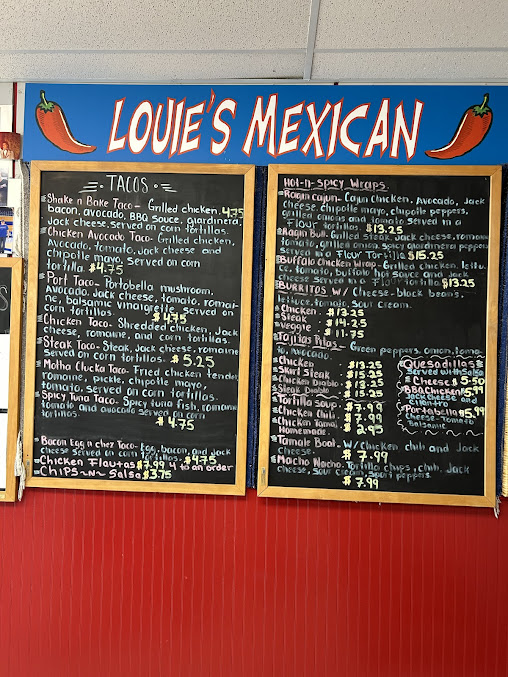 LOUIE'S MEXICAN
TACOS
Shake n Bake Taco- Grilled chicken, 4.75
bacon, avocado, BBQ sauce, giardinera,
Jack cheese, served on corn tortillas.
Chicken Avocado Taco- Grilled chicken,
Avocado, tomato, Jack cheese and
chipotle mayo, served on corn
tortilla. $4.75
Port Taco- Portobella mushroom,
Avocado, Jack cheese, tomato, romai-
ne, balsamic vinaigrette, served on
corn tortillas. $4.75
Chicken Taco- Shredded chicken, Jack
cheese, romaine, and corn tortillas.
Steak Taco- Steak, Jack cheese, romaine
served on corn tortillas. $5.25
Motha Clucka Taco- Fried chicken tender,
romaine, pickle, chipotle mayo,
tomato, served on corn tortillas.
Spicy Tuna Taco- Spicy tuna fish, romaine
tomato, and avocado served on corn
tortillas. $4.75
Bacon Egg n chez Taco- Egg, bacon, and Jack
cheese, served on corn tortillas. $4.75
Chicken Flautas $7.99 4 to an order
Chips-N- Salsa $3.75
Hot-n-Spicy Wraps
Ragin Cajun- Cajun Chicken, Avocado, Jack
cheese, chipotle mayo, chipotle peppers,
grilled onions and tomato served in a
Flour tortillas. $13.25
Ragin Bull- Grilled steak, Jack cheese, romaine
tomato, grilled onion, spicy giardinera peppers
served in a Flour Tortilla $15.25
Buffalo Chicken Wrap- Grilled chicken, lettu
ce, tomato, buffalo hot sauce and Jack
cheese served in a Flour tortilla $13.25
BURRITOS W/ Cheese- black beans,
lettuce, tomato, Sour cream.
Chicken $13.25
Steak $14.25
veggie $11.75
Fajitas Pitas- Green peppers, onion, toma-
to, Avocado.
Chicken $13.25
Skirt Steak $15.25
Chicken Diablo $13.25
Steak Diablo $15.25
Tortilla Soup- $7.99
Chicken Chili- $7.99
Chicken Tamal, $2.95
Homemade
Tamale Boat- W/ Chicken chili and Jack
cheese. $7.99
Macho Nacho- Tortilla chips, chili, Jack
cheese, Sour cream, Sport peppers.
$7.99
Quesadillas
Served with Salsa
Cheese $5.50
BBQ Chicken $5.99
Jack cheese and
cilantro
Portabella $5.99
Cheese-Tomato
Balsamic